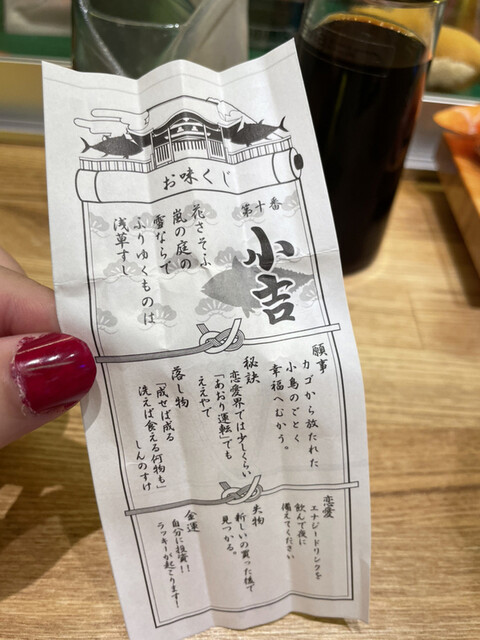 お味くじ
第十番
小吉
花さそふ
嵐の庭の
雪ならで
ふりゆくものは
浅草すし
願事
カゴから放たれた
小鳥のごとく
幸福へむかう。
秘訣
恋愛界では少しくらい
「あおり運転」でも
ええやで
落し物
「成せば成る
洗えば食える何物も」
しんのすけ
恋愛
エナジードリンクを
飲んで夜に
備えてください
失物
新しいの買った後で
見つかる。
金運
自分に投資!!
ラッキーが起こります!